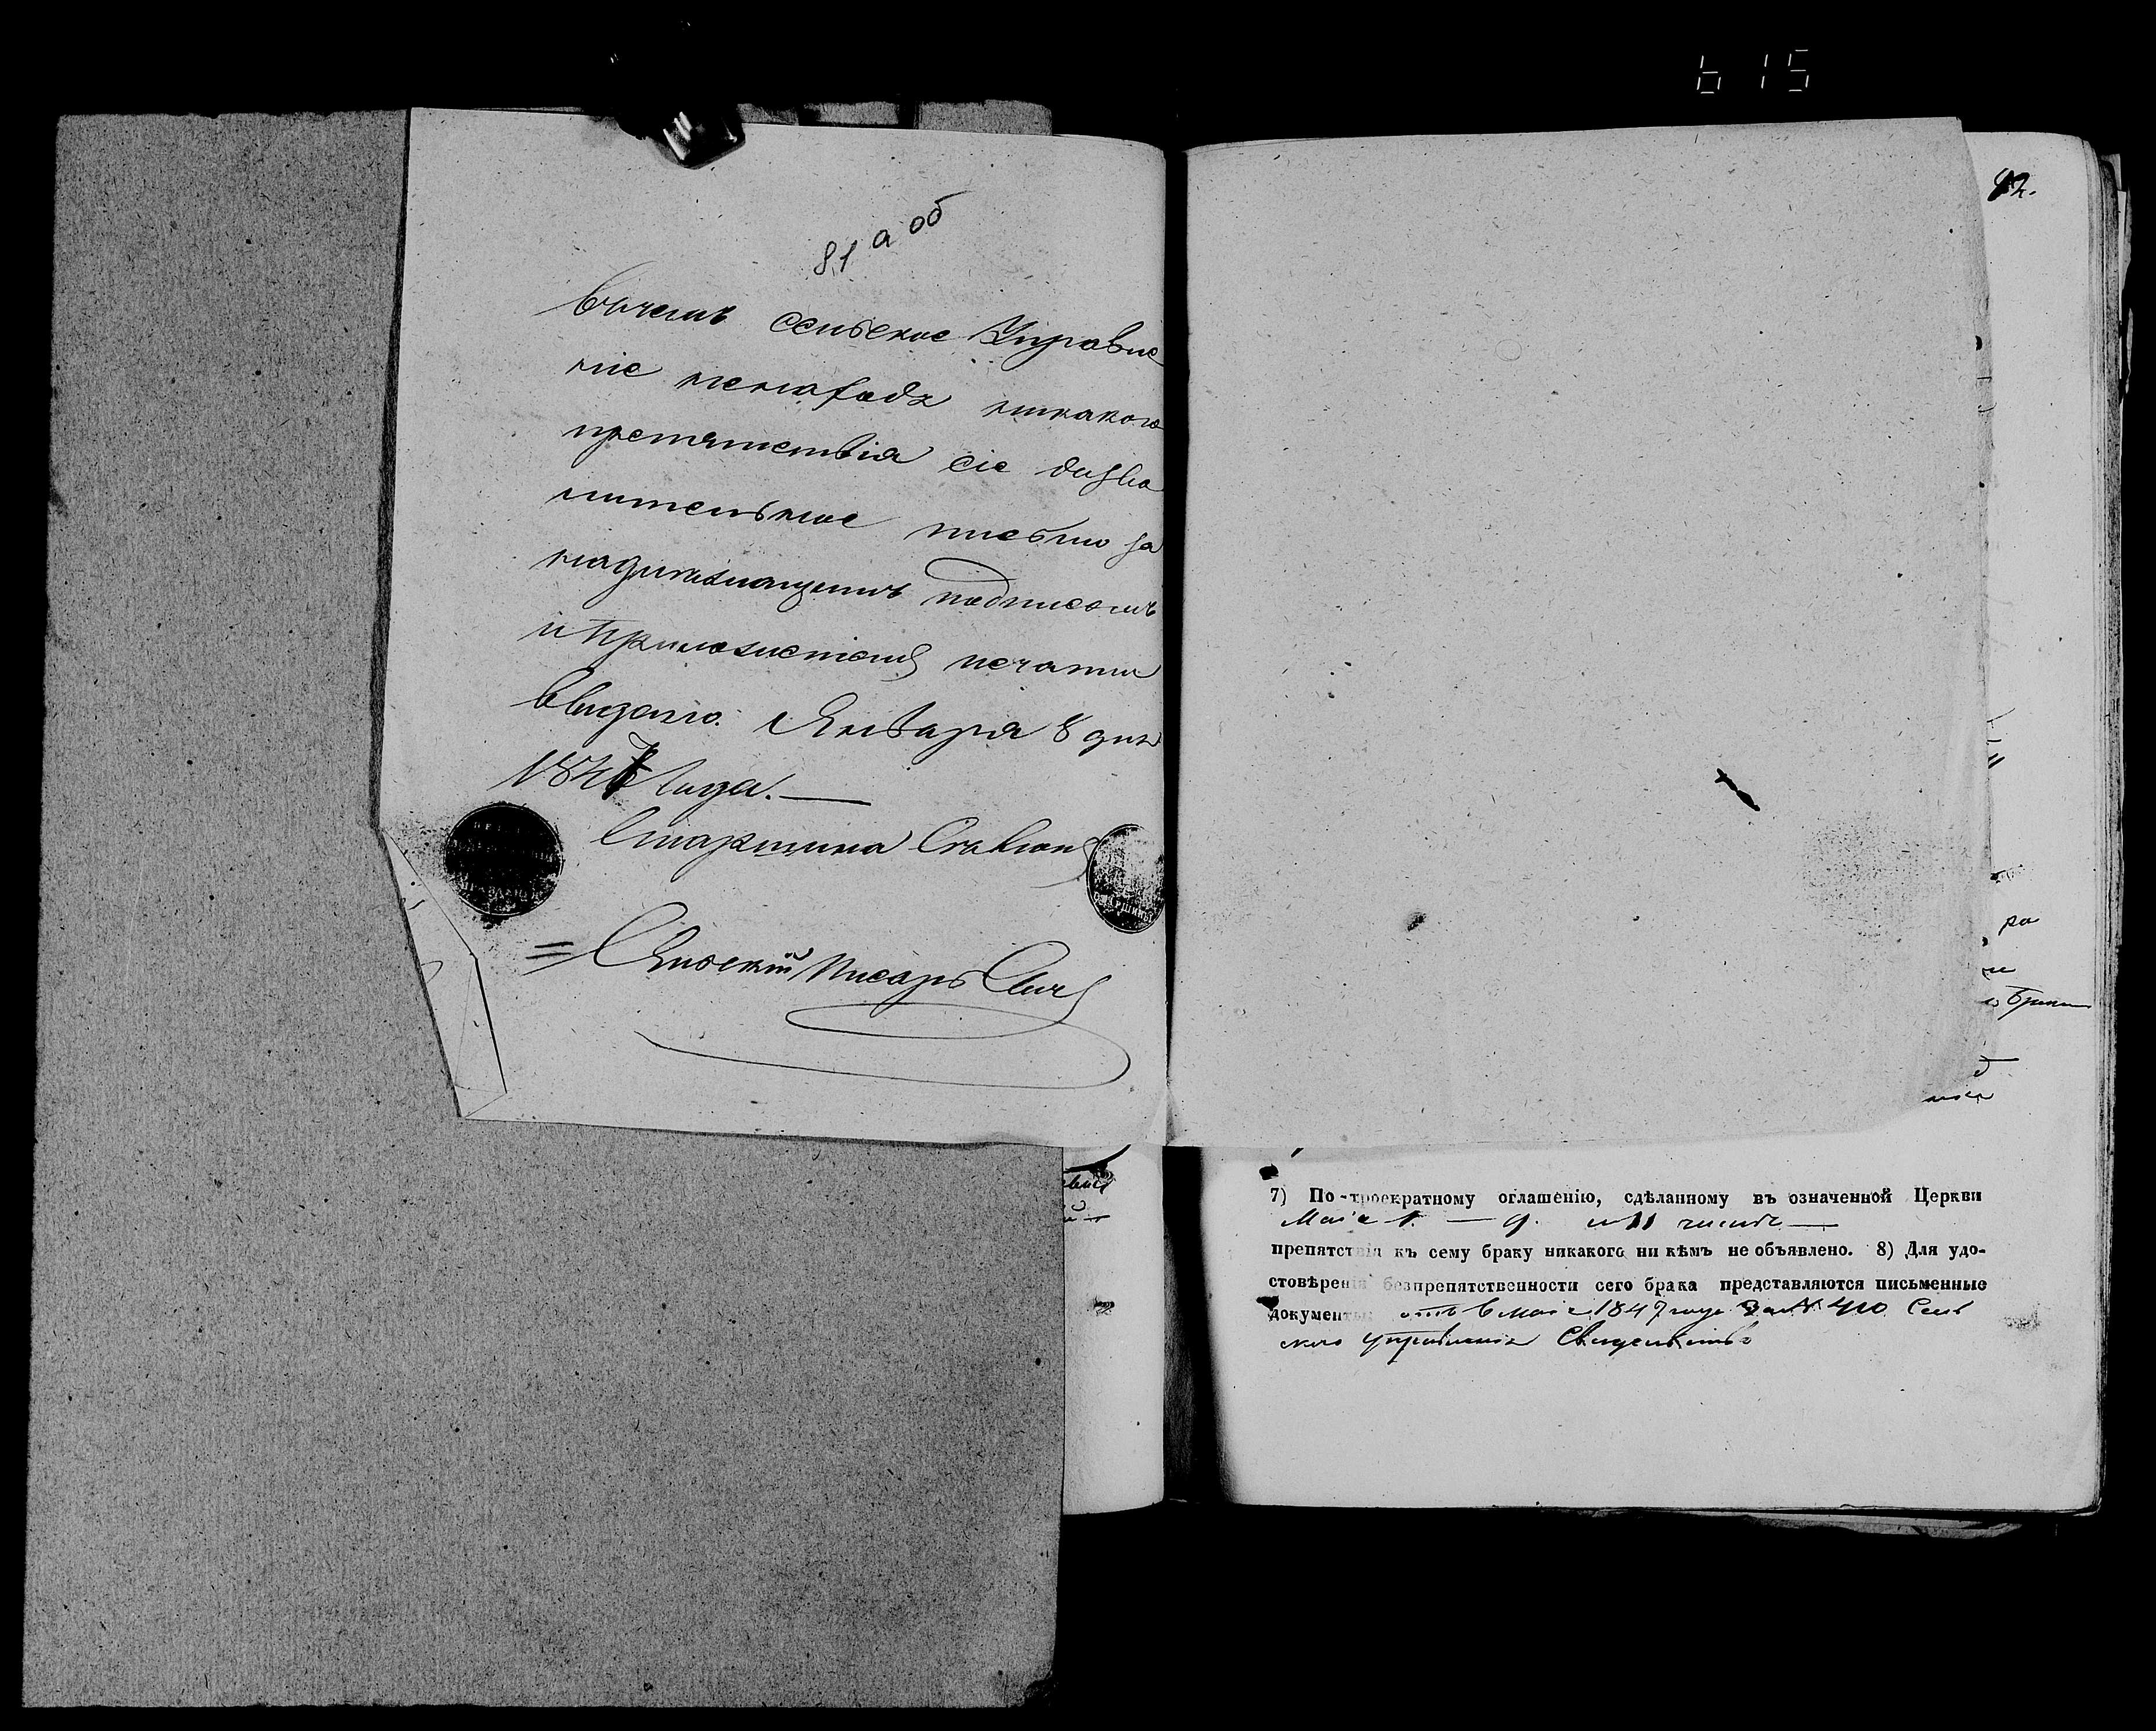 615
81 а об
82.
вчемъ сельское Управле
ніе ненаходя никакого
препятствія сіе дозво
лительное письмо за
надлежащимъ подписомъ
и приложеніемъ печати
выдано. Января 8 дня
1847 Года.
Старшина
Сельскій Писарь
ра
7) По троекратному оглашенію, сдѣланному въ означенной Церкви
Маія 1. — 9. и 11 числъ —
препятствія къ сему браку никакого ни кѣмъ не объявлено. 8) Для удо-
стовѣренія безпрепятственности сего брака представляются письменные
документы: отъ 6 Маія 1847 года за № 410 Сель
скаго управленія Свидетельство